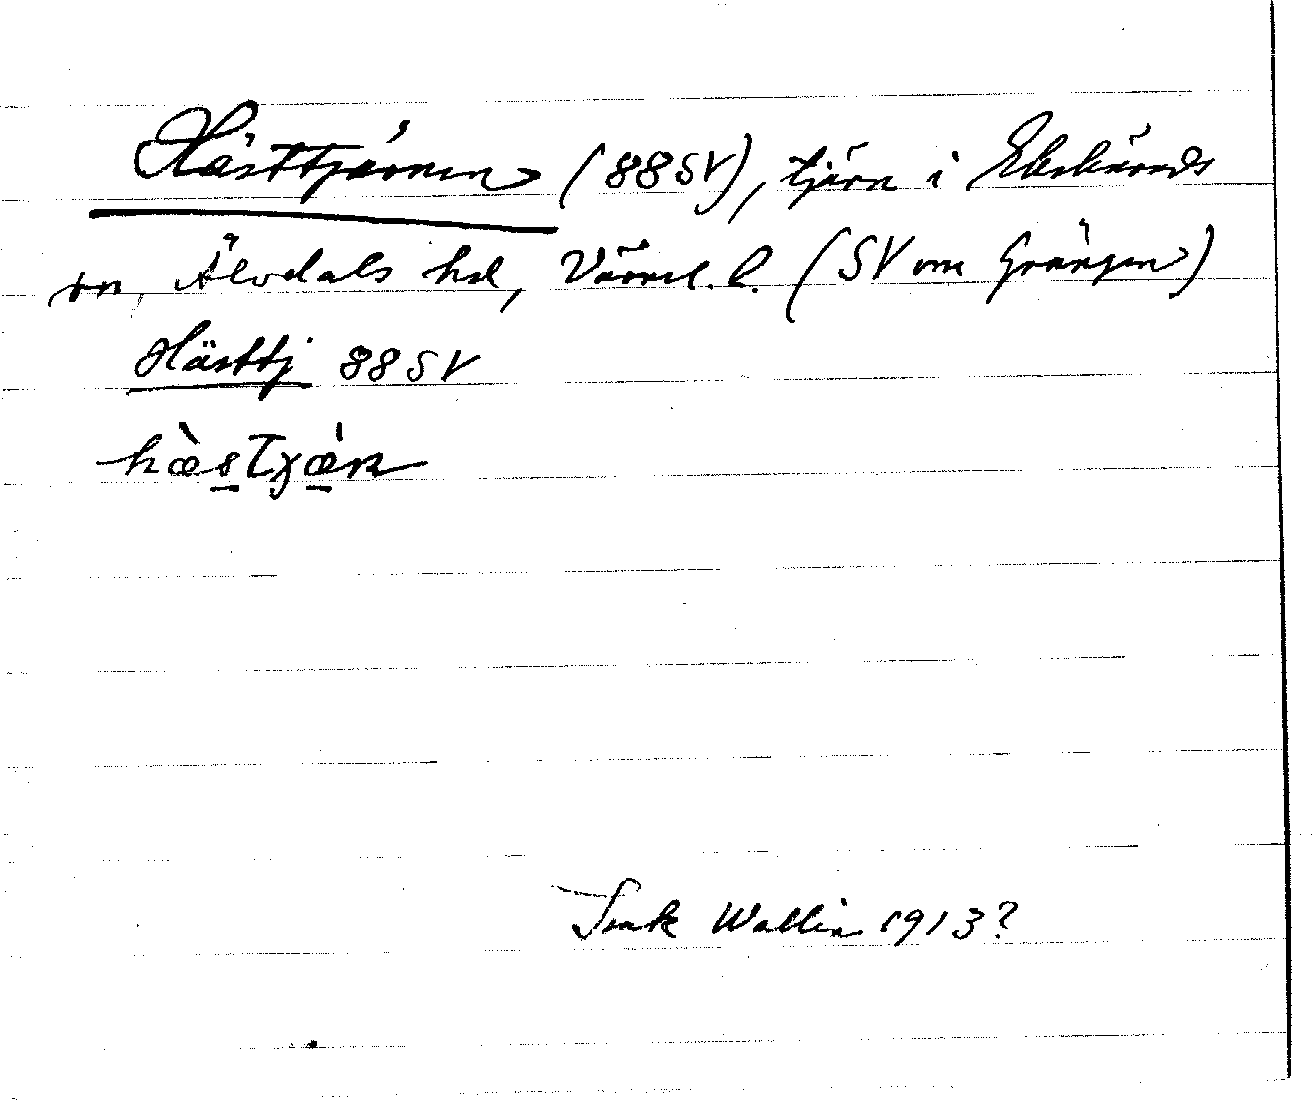 Hästtjärnen (88SV), tjärn i Ekshärads
sn, Älvdals hd, Värml. l. (SV om Grängen)
Hästtj 88SV
hæ̀stjæ̀n
Wallin 1913?